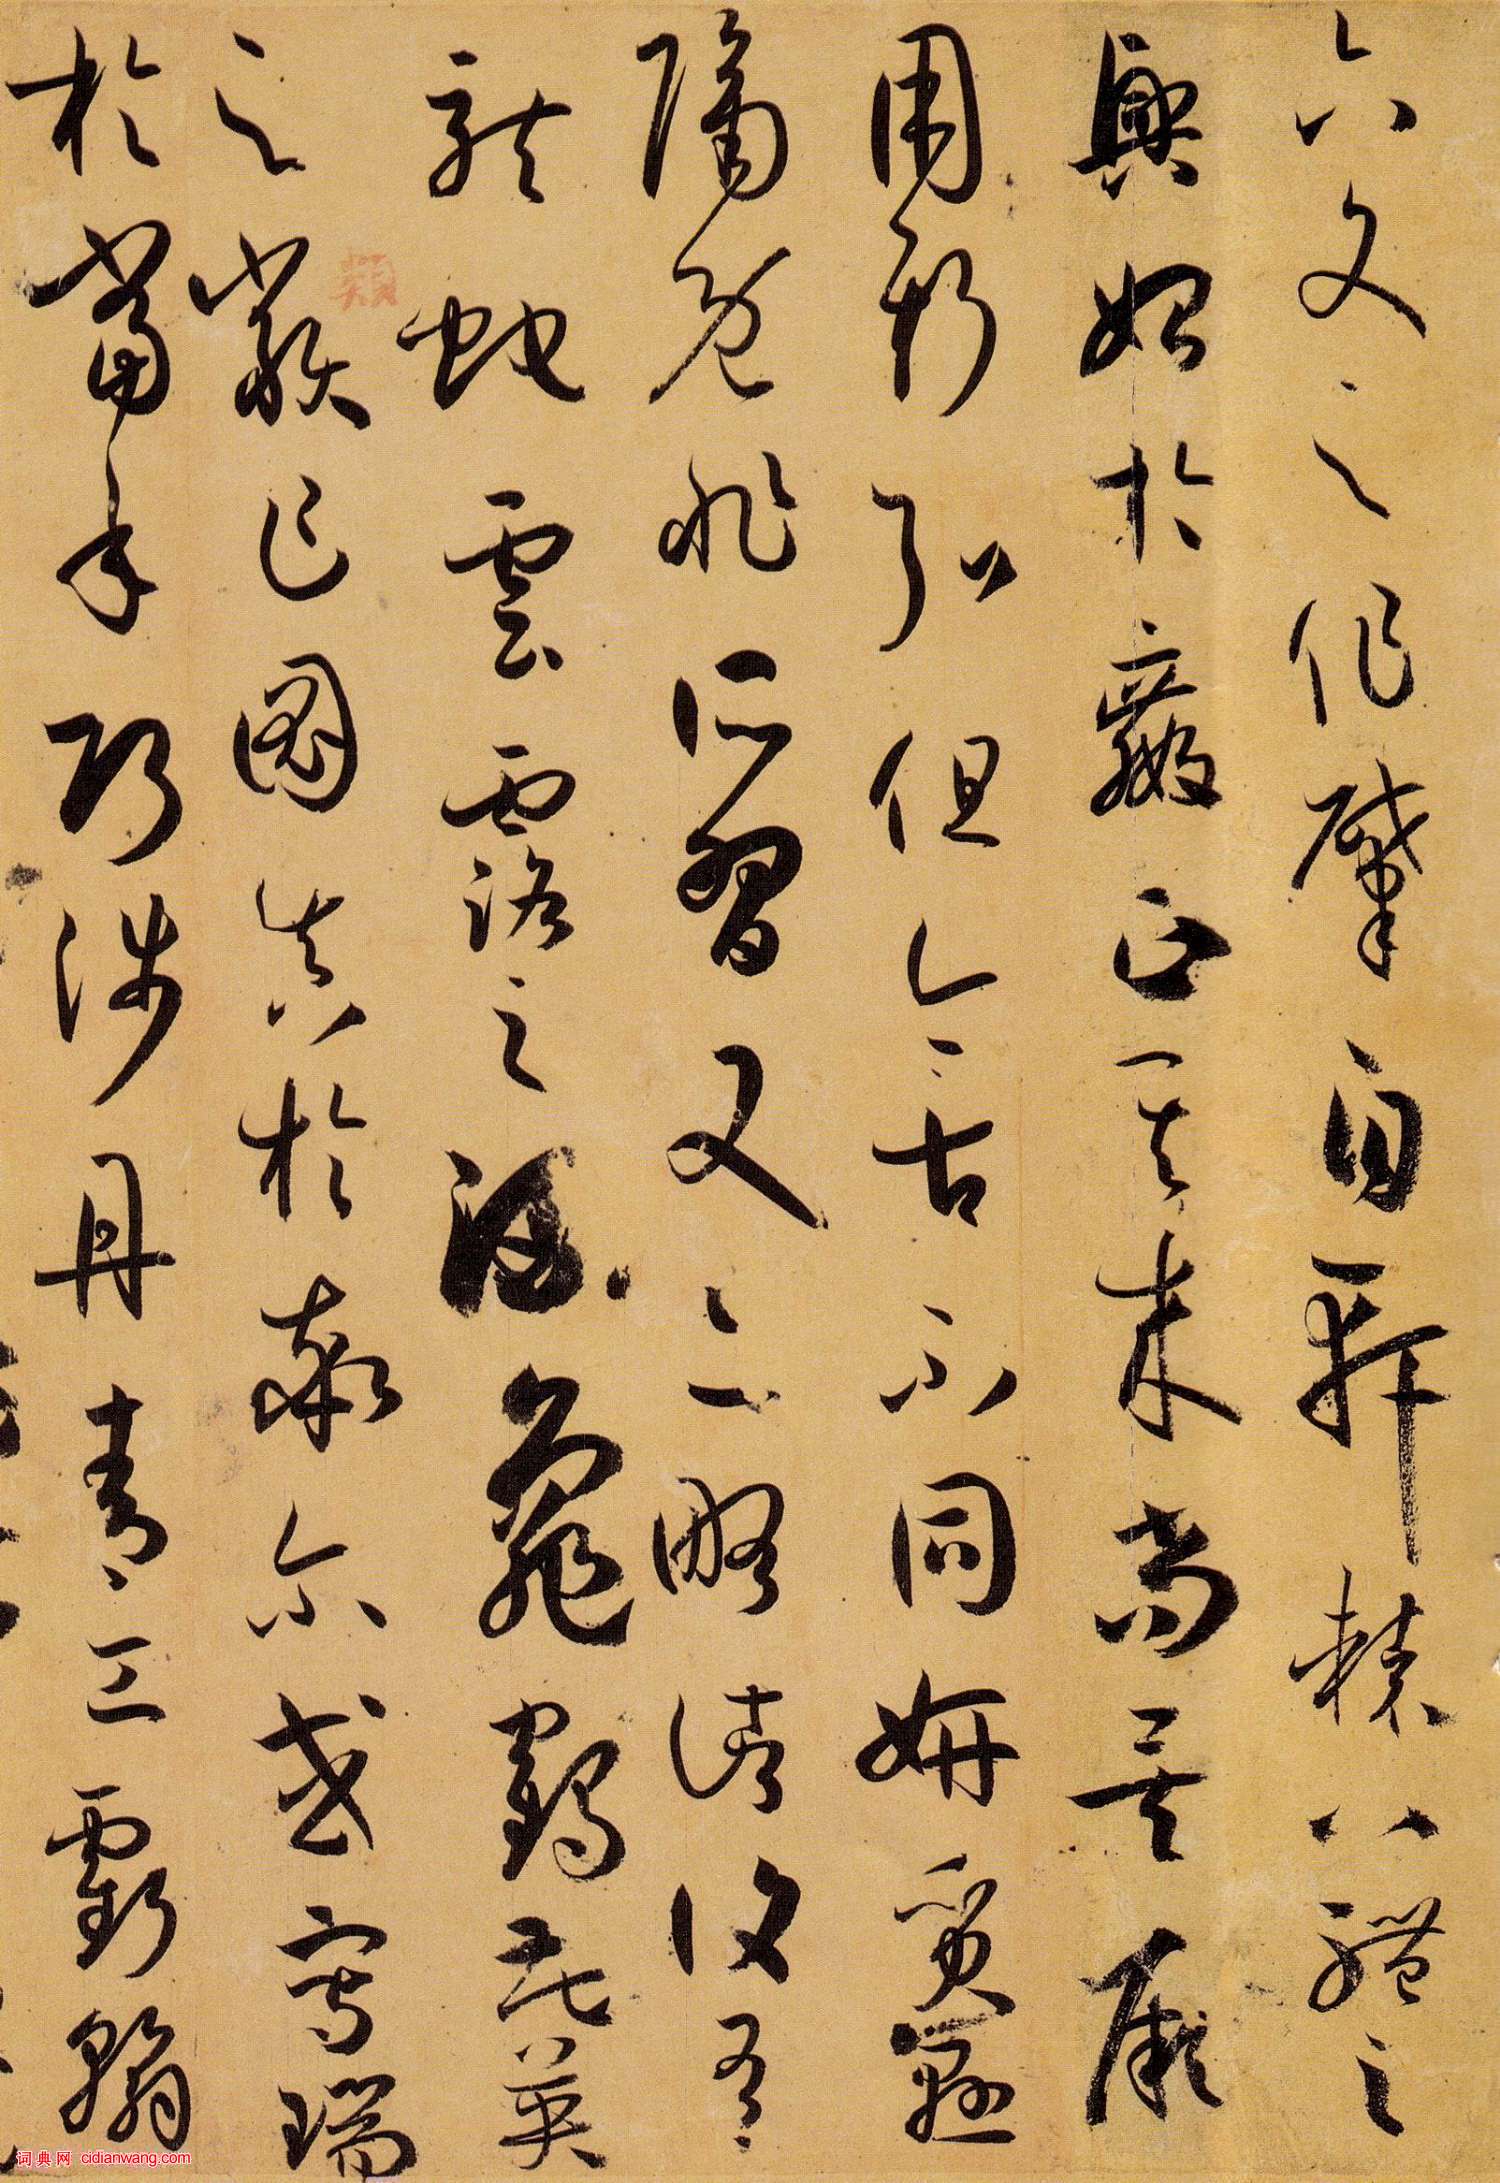 六文之作肇自軒轅八體之
興始於嬴正其来尚矣厥
用斯弘但今古不同妍質懸
隔既非所習又亦略諸復有
龍蛇雲露之流龜鶴花英
之類乍圖真於率尓或寫瑞
於當年巧涉丹青工虧翰
词典网 cidianwang.com